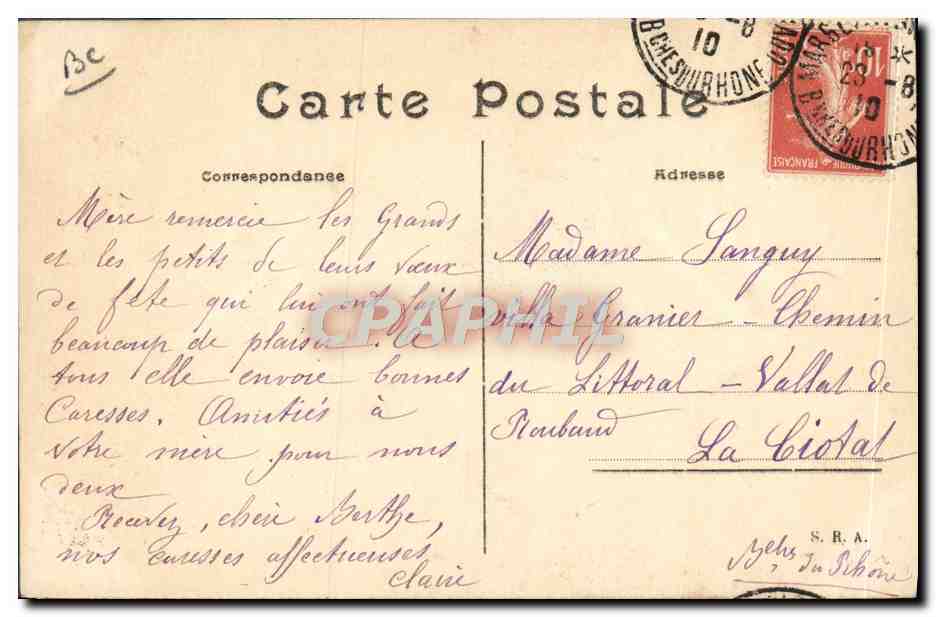 BC
Carte Postale
Correspondance
Mère remercie les Grands
et les petits de leurs vœux
de fête qui lui ont fait
beaucoup de plaisir. A
tous elle envoie bonnes
Caresses. Amitiés à
votre mère pour nous
deux
Recevez, chère Berthe,
nos caresses affectueuses
Claire
Adresse
Madame Sanguy
villa Granier - Chemin
du Littoral - Vallat de
Roubaud
La Ciotat
S. R. A.
Bches du Rhône
-8
10
BCHES DU RHONE
MARSE
23 -8
10
BCHES DU RHONE
10
FRANÇAISE
CPAPHIL